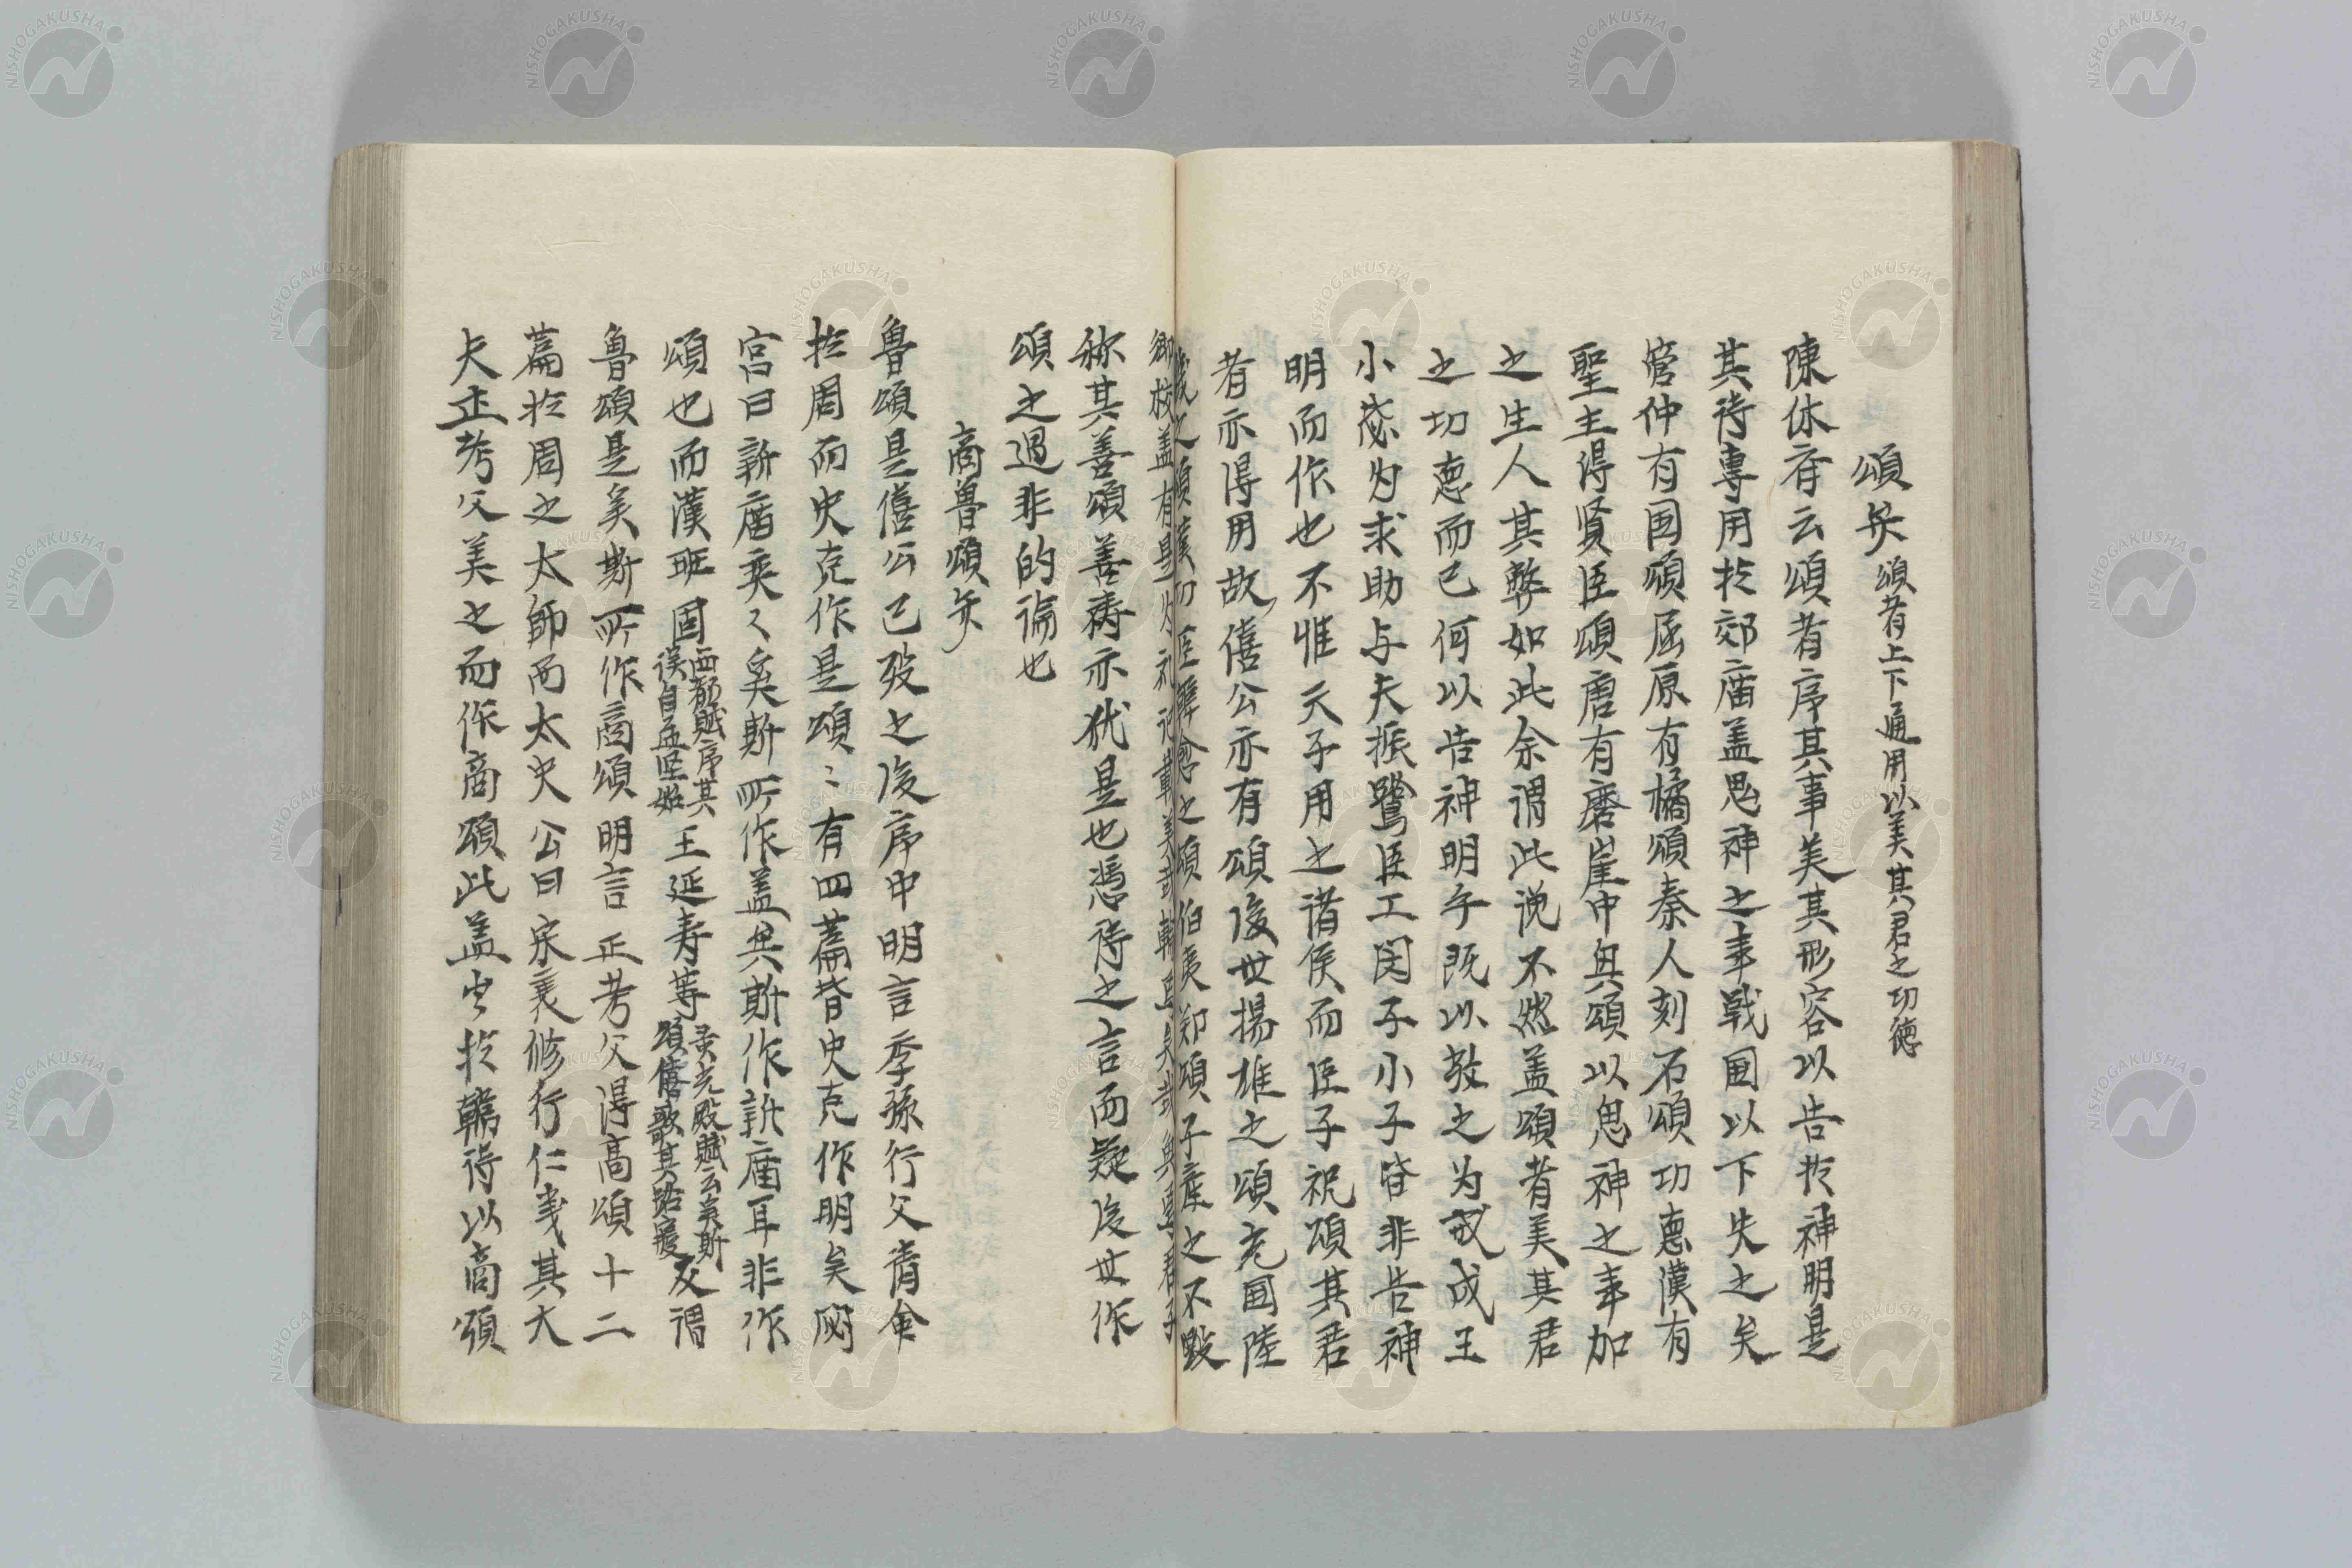 頌矣 頌者上下通用以美其君之功徳
陳休斎云頌者序其事美其形容以告扵神明是
其詩専用扵郊庿盖鬼神之事戦国以下失之矣
管仲有国頌屈原有橘頌秦人刻石頌功悳漢有
聖主得賢臣頌唐有磨崖中興頌以鬼神之事加
之生人其弊如此余謂此説不然盖頌者美其君
之功悳而已何以告神明乎既以敬之为戒成王
小毖为求助与夫振鷺臣工閔予小子皆非告神
明而作也不惟天子用之諸侯而臣子祝頌其君
者亦得用故僖公亦有頌後世揚雄之頌充国陸
機之頌漢功臣韓愈之頌伯夷郑頌子産之不毀
郷校盖有是灼礼記載美哉輪焉美哉奐焉君子
称其善頌善祷亦犹是也憑詩之言而疑後世作
頌之過非的論也
商魯頌矣
魯頌是僖公已歿之後序中明言季孫行父請命
扵周而史克作是頌〻有四篇皆史克作明矣閟
宮曰新庿奕〻奚斯所作盖奚斯作新庿耳非作
頌也而漢班固 西都賦序其 誤自孟坚始 王延寿等 灵光殿賦云奚斯 頌僖歌其路寝 反謂
魯頌是奚斯所作商頌明言正考父得商頌十二
篇扵周之太師而太史公曰宋襄修行仁義其大
夫正考父美之而作商頌此盖出扵韓詩以商頌